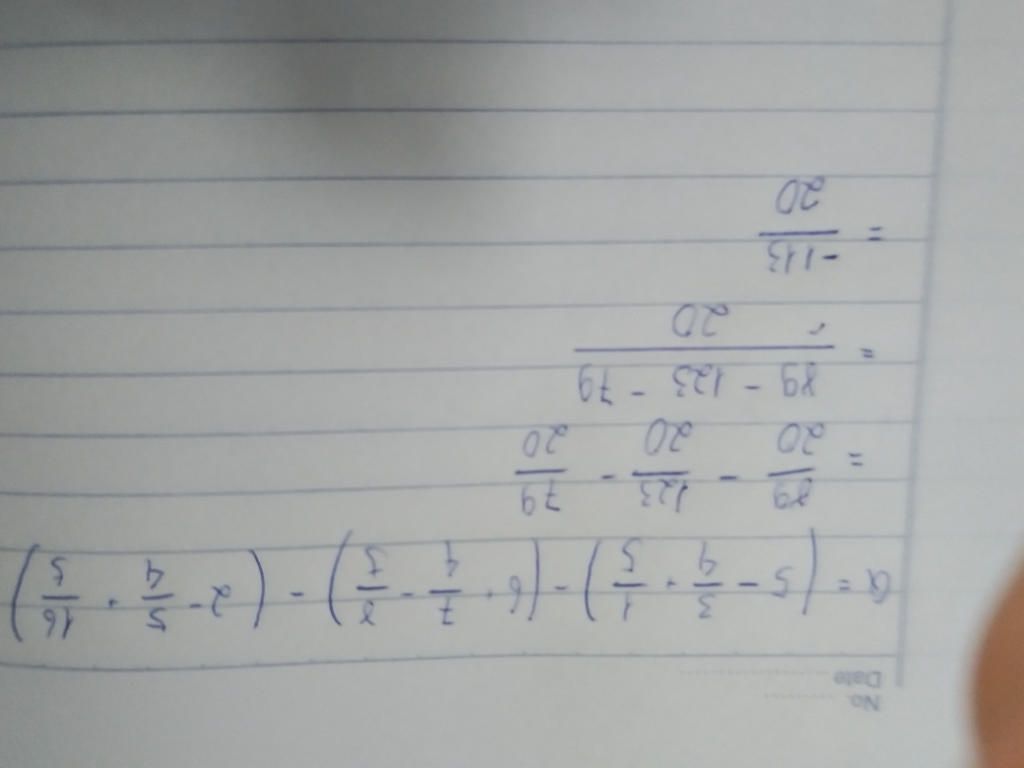 No.
Date
a = (5 - 3/4 + 1/5) - (6 + 7/4 - 8/5) - (2 - 5/4 + 16/5)
= 89/20 - 123/20 - 79/20
= (89 - 123 - 79)/20
= -113/20